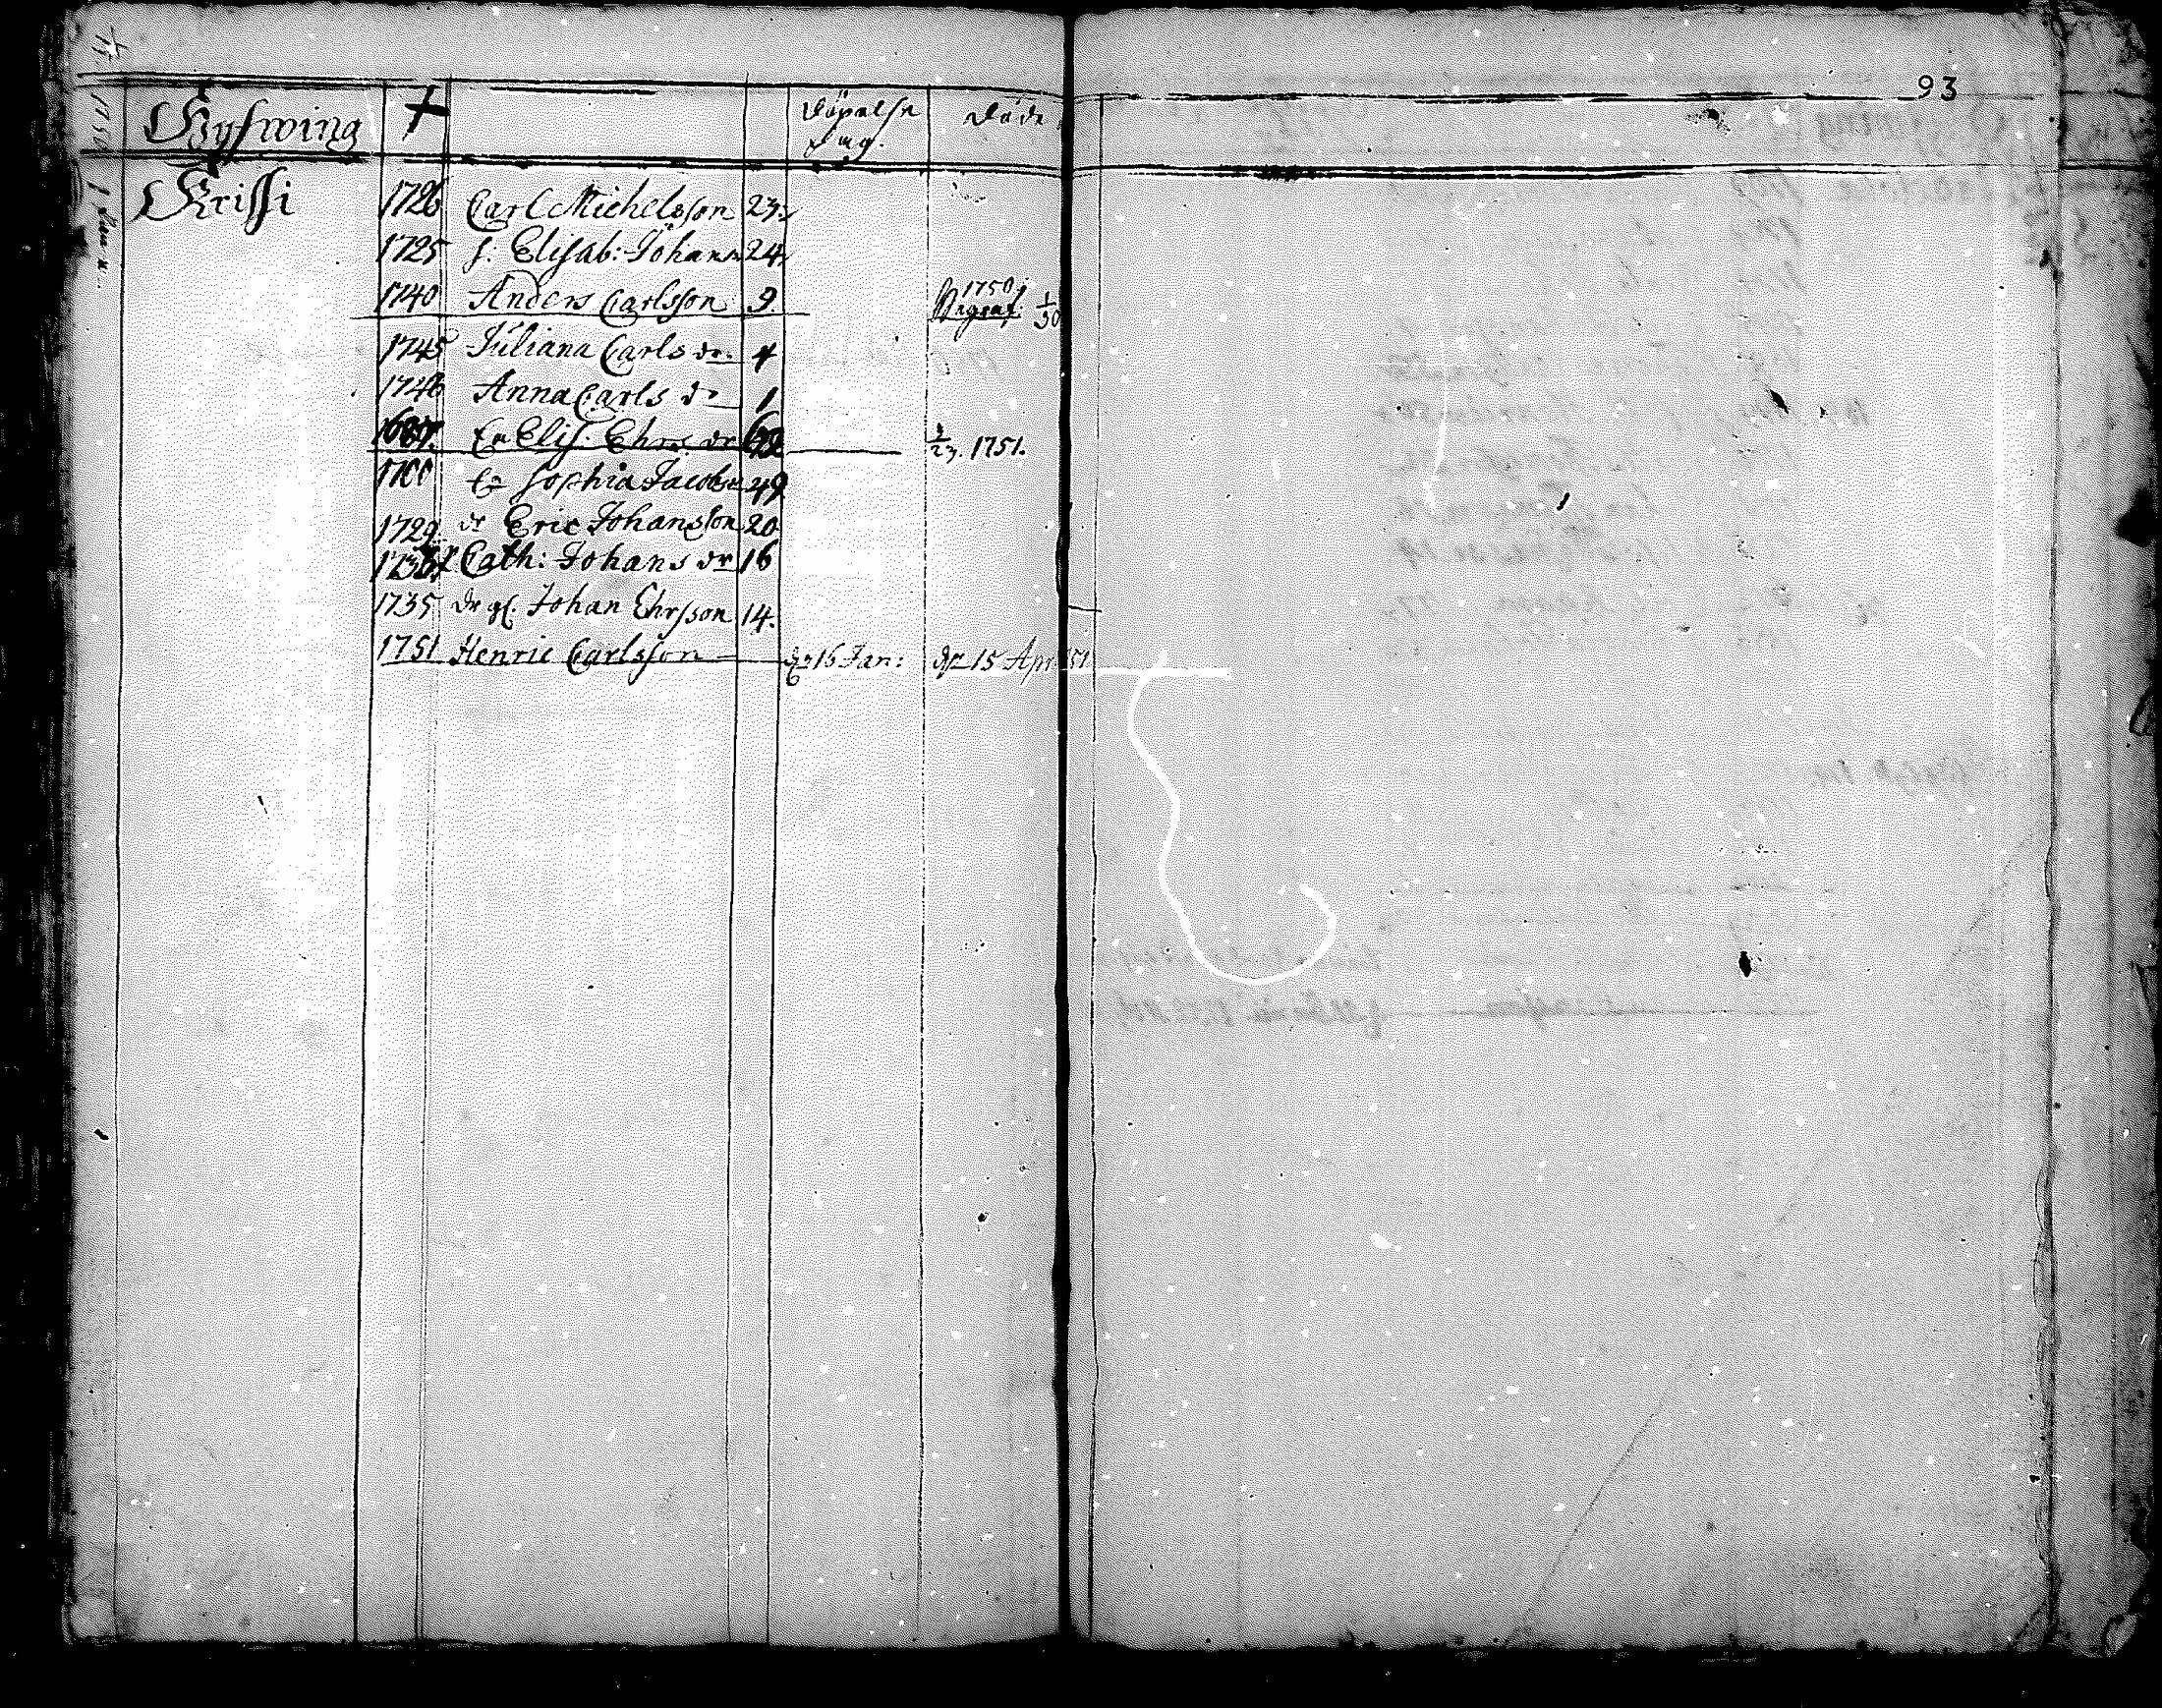 93
Gyswing + Döpelse dag. Döde
Krissi 1726 Carl Michelsson 23
1725 h: Elisab: Johans dr 24
1740 Anders Carlsson 9. 1750 Begraf: 1/30
1745 Juliana Carls dr 4
1748 Anna Carls dr 1
1687 Enk Elis: Ehrs dr 62 3/23. 1751.
1700 Sophia Jacobs 49
1729 dr Eric Johansson 20
1733 Cath: Johans dr 16
1735 dr gl. Johan Ehrsson 14.
1751 Henric Carlsson dn 16 Jan: dn 15 Apr 51